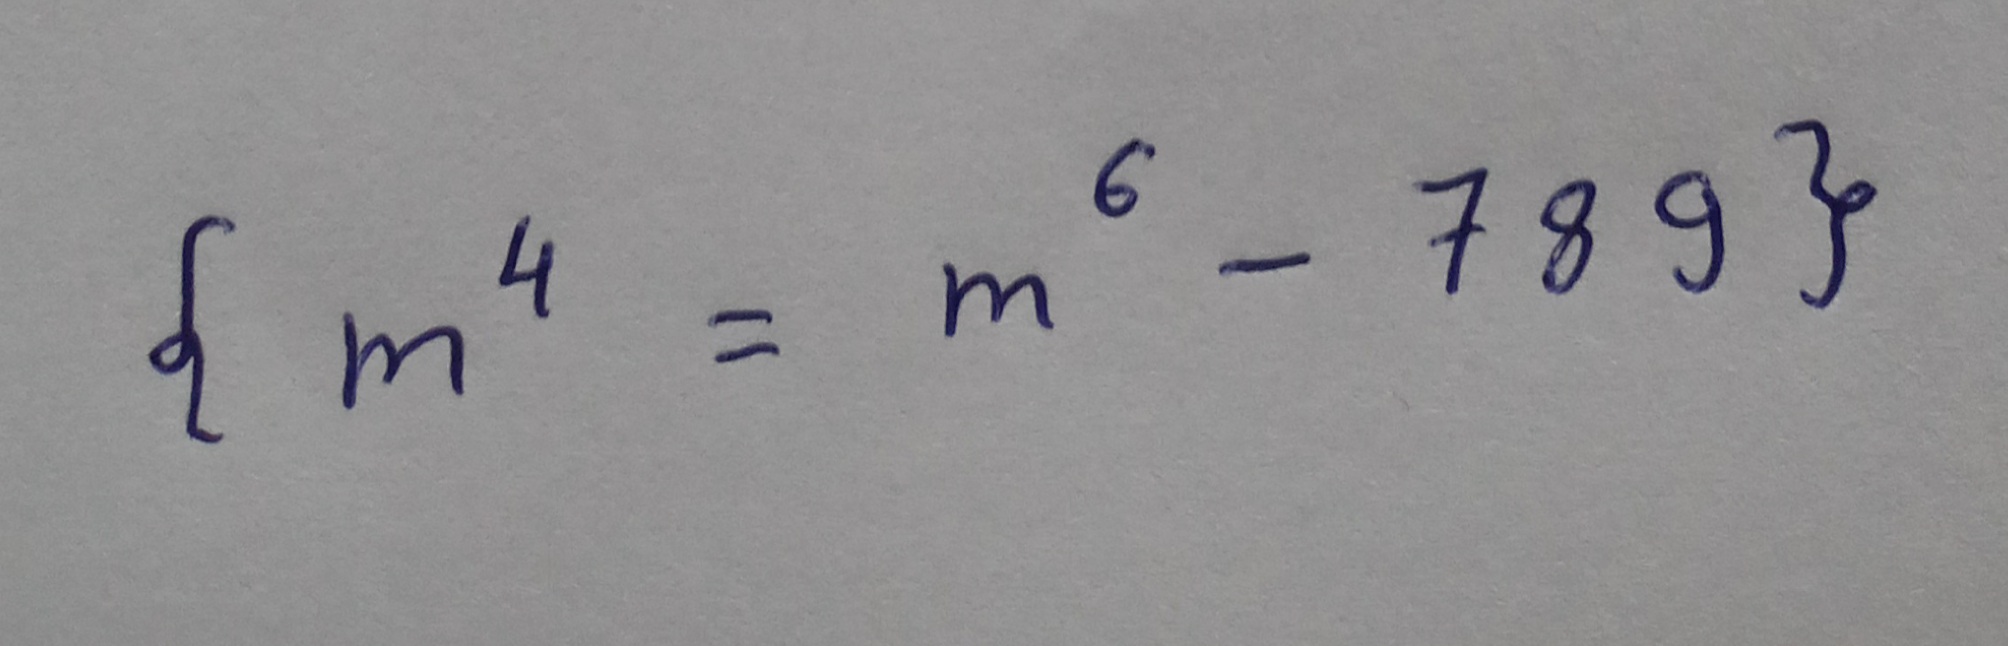 { m⁴ = m⁶ - 789}